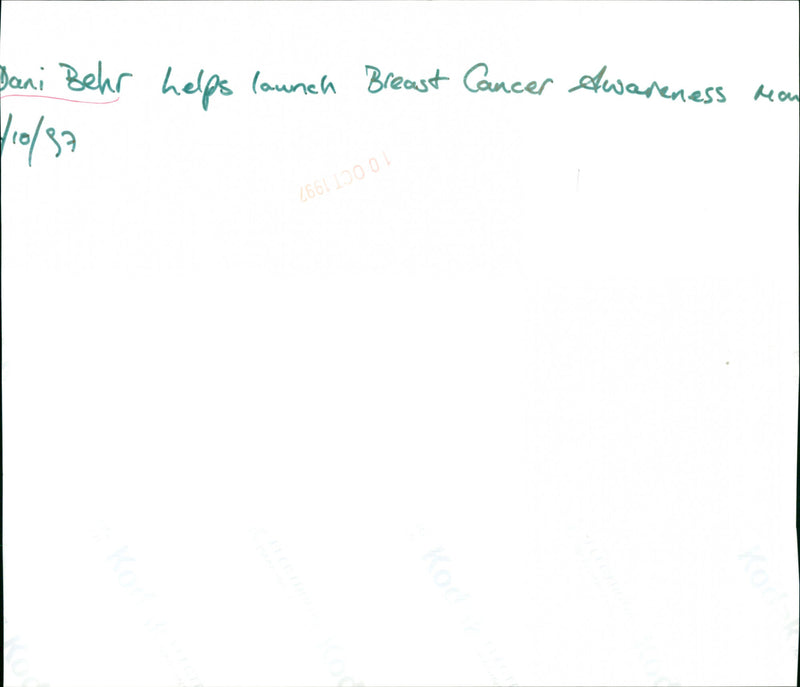 Dani Behr helps launch Breast Cancer Awareness Mon
/10/97
10 OCT 1997
Kodak
Kodak
Kodak